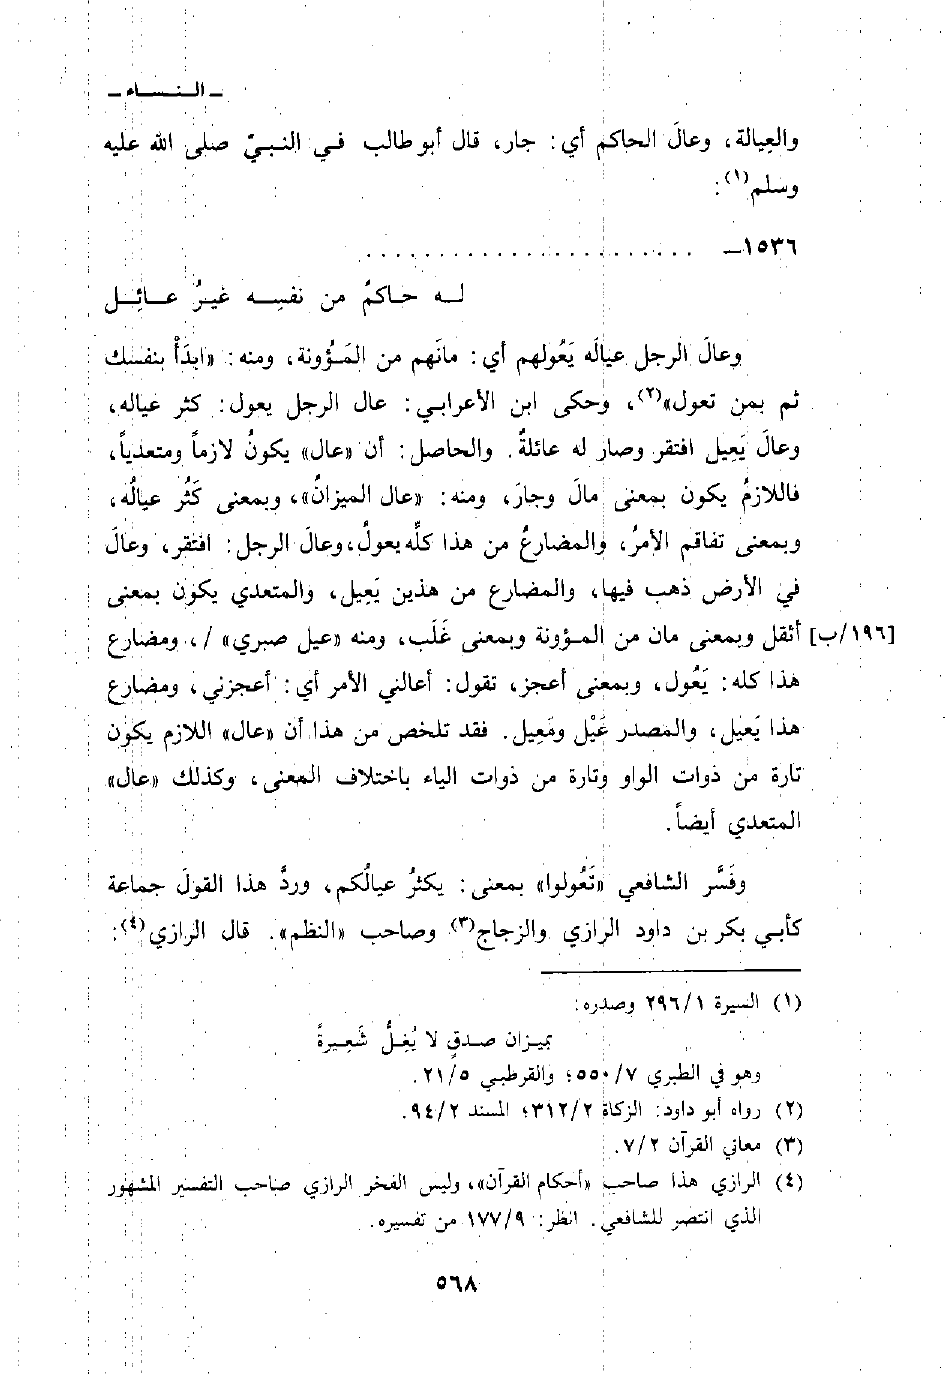 ـ النساء ـ
والعِيالة، وعالَ الحاكم أي: جار، قال أبو طالب في النبيّ صلى الله عليه
وسلم(١):
١٥٣٦ـ . . . . . . . . . . . . . . . . . . . . . . .
له حاكمٌ من نفسِه غيرُ عائِل
وعالَ الرجل عيالَه يَعُولهم أي: مانَهم من المَؤُونة، ومنه: «ابدَأْ بنفسك
ثم بمن تعول»(٢)، وحكى ابن الأعرابي: عال الرجل يعول: كثر عياله،
وعالَ يَعِيل افتقر وصار له عائلةٌ. والحاصل: أن «عال» يكونُ لازماً ومتعدياً،
فاللازمُ يكون بمعنى مالَ وجارَ، ومنه: «عال الميزانُ»، وبمعنى كَثُر عيالُه،
وبمعنى تفاقم الأمرُ، والمضارعُ من هذا كلِّه يعولُ، وعالَ الرجل: افتقر، وعالَ
في الأرض ذهب فيها، والمضارع من هذين يَعِيل، والمتعدي يكون بمعنى
[١٩٦/ب] أثقل وبمعنى مان من المؤونة وبمعنى غَلَب، ومنه «عيل صبري» /، ومضارع
هذا كله: يَعُول، وبمعنى أعجز، تقول: أعالني الأمر أي: أعجزني، ومضارع
هذا يَعيل، والمصدر عَيْل ومَعِيل. فقد تلخص من هذا أن «عال» اللازم يكون
تارة من ذوات الواو وتارة من ذوات الياء باختلاف المعنى، وكذلك «عال»
المتعدي أيضاً.
وفَسَّر الشافعي «تَعُولوا» بمعنى: يكثرُ عيالُكم، وردَّ هذا القولَ جماعة
كأبي بكر بن داود الرازي والزجاج(٣) وصاحب «النظم». قال الرازي(٤):
(١) السيرة ٢٩٦/١ وصدره:
بميزان صدقٍ لا يُغِلُّ شَعِيرةً
وهو في الطبري ٥٥٠/٧؛ والقرطبي ٢١/٥.
(٢) رواه أبو داود: الزكاة ٣١٢/٢؛ المسند ٩٤/٢.
(٣) معاني القرآن ٧/٢.
(٤) الرازي هذا صاحب «أحكام القرآن»، وليس الفخر الرازي صاحب التفسير المشهور
الذي انتصر للشافعي. انظر: ١٧٧/٩ من تفسيره.
٥٦٨